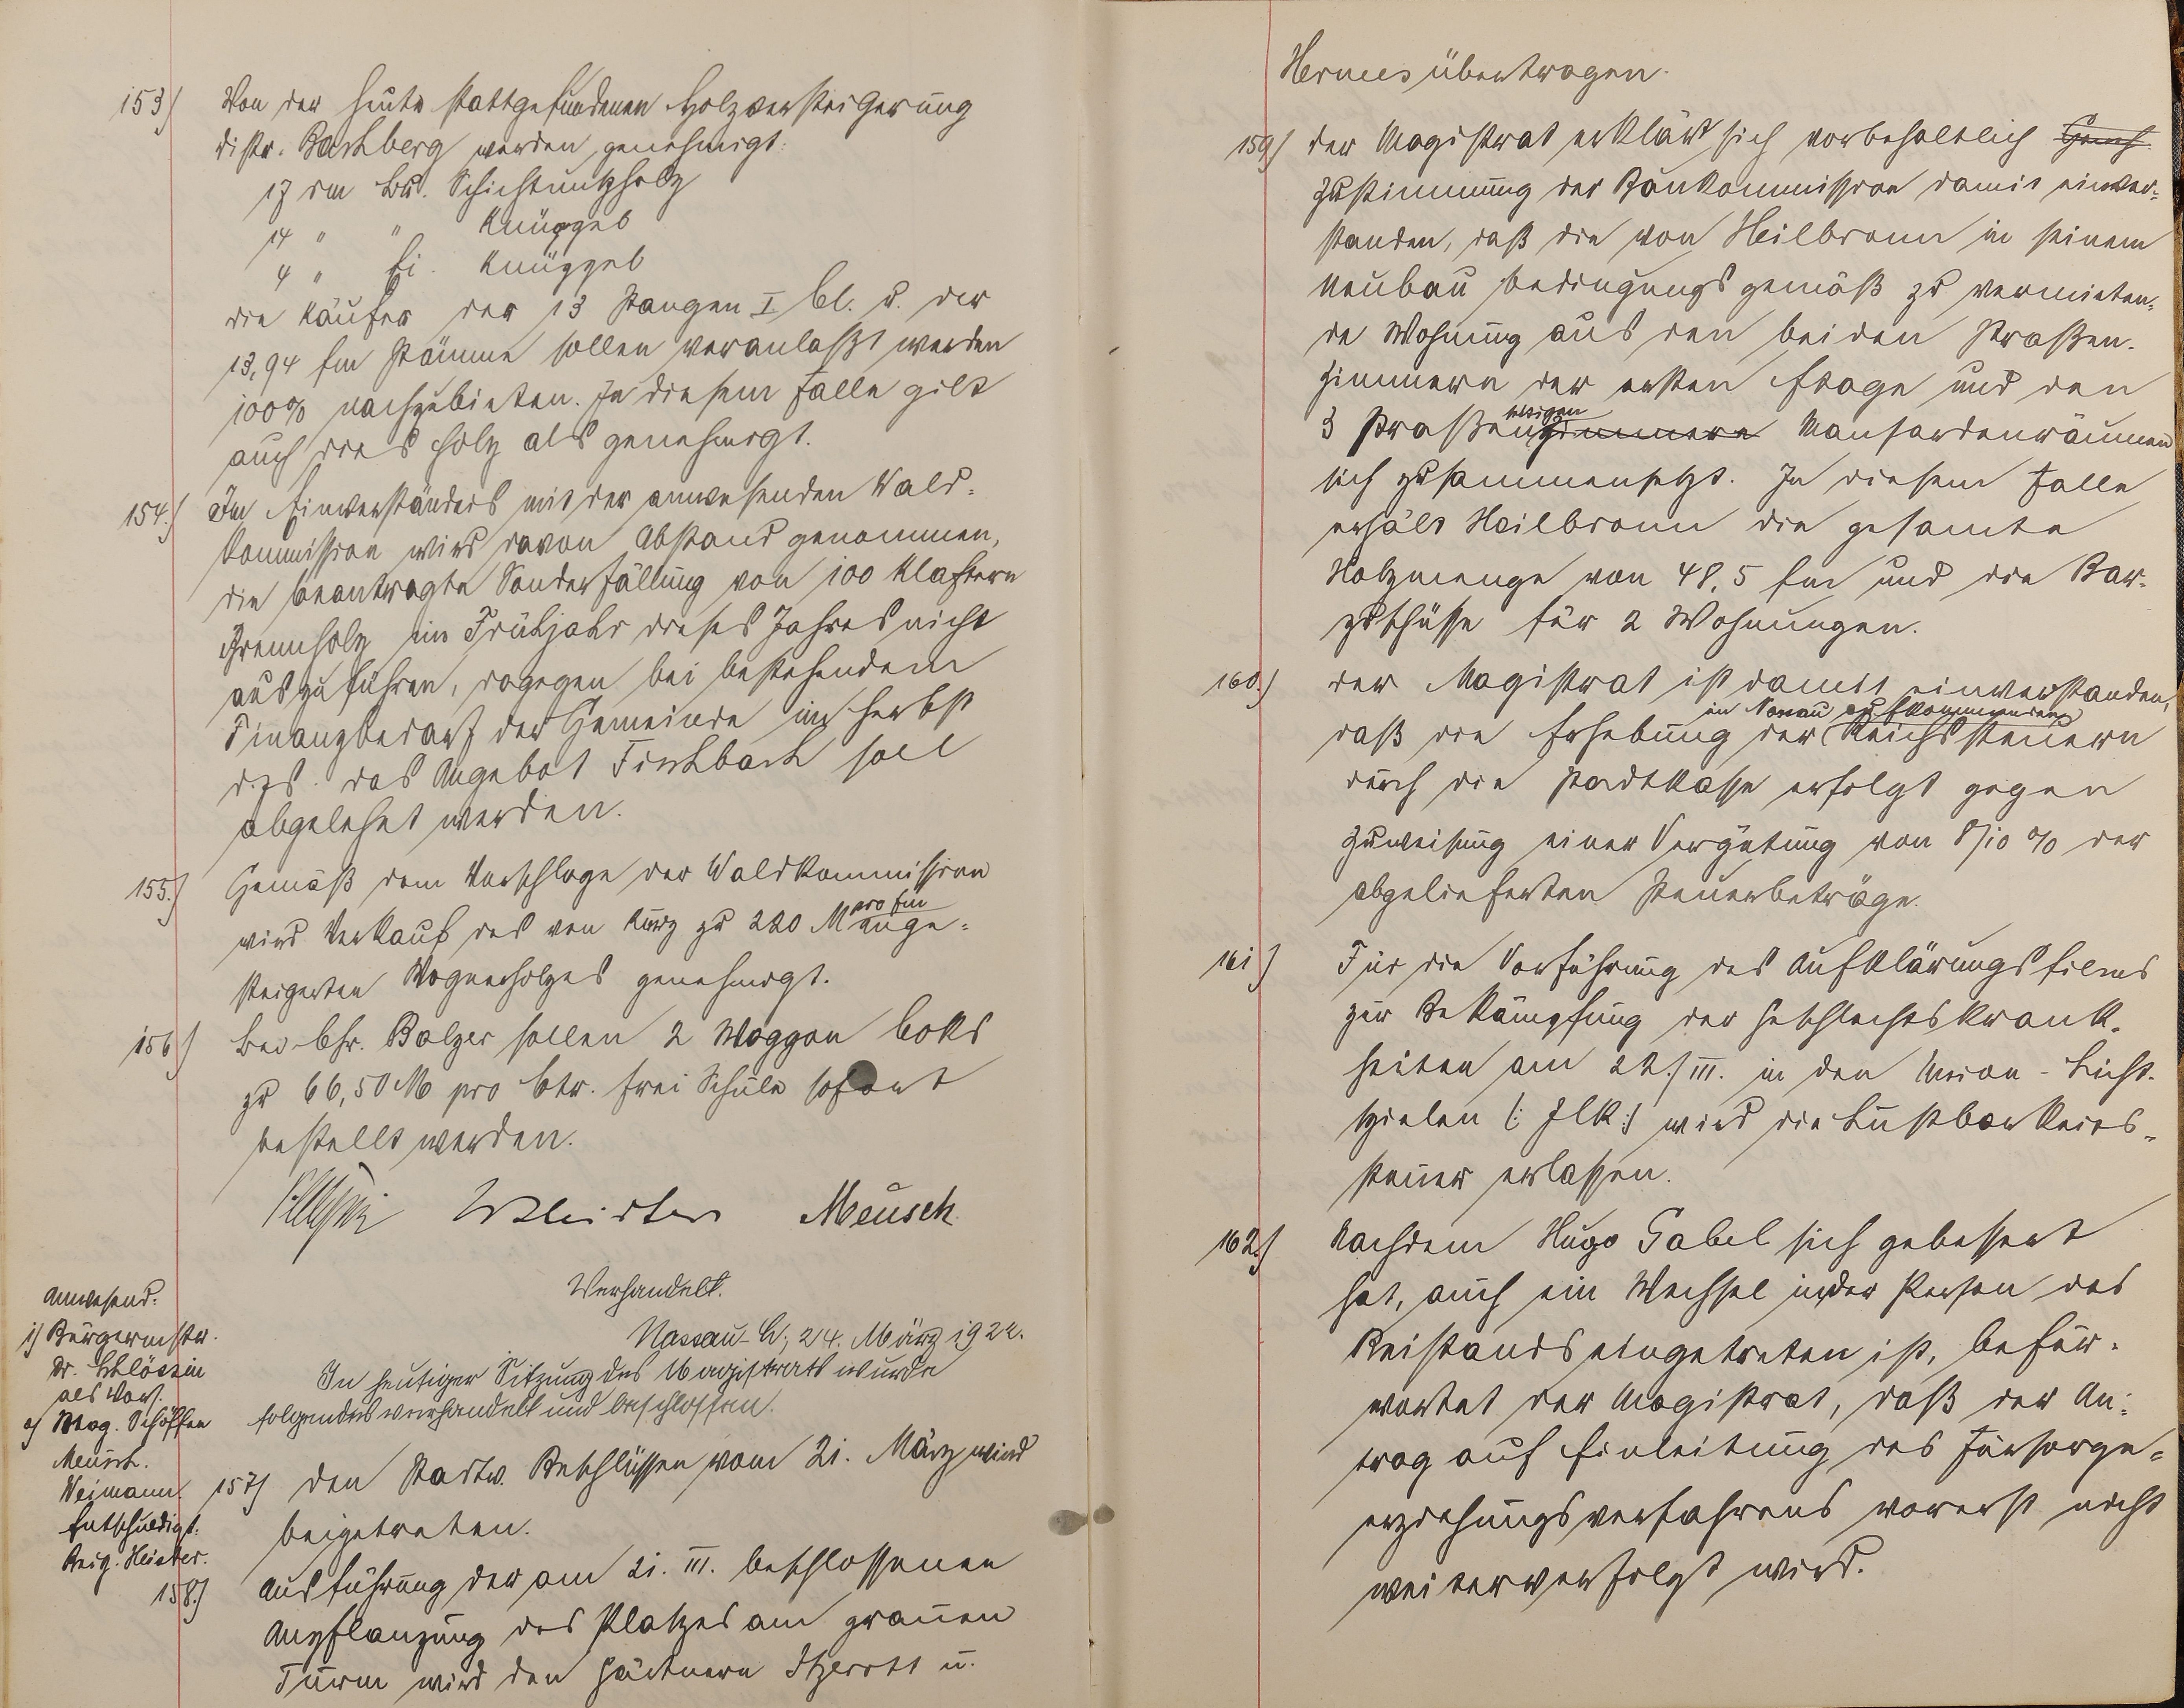 153) Von der heute stattgefundenen Holzversteigerung
Distr. Bachberg werden genehmigt:
17 rm Bu. Schichtnutzholz
14 " " Knüppel
4 " Ei. Knüppel
die Käufer der 13 Stangen I Cl. u. der
13,94 fm Stämme sollen veranlaßt werden
100% nachzubieten. In diesem Falle gilt
auch dies Holz als genehmigt.
154.) Im Einverständnis mit der anwesenden Wald-
kommission wird davon Abstand genommen,
die beantragte Sonderfällung von 100 Klaftern
Brennholz im Frühjahr dieses Jahres nicht
auszuführen, dagegen bei bestehendem
Finanzbedarf der Gemeinde im Herbst
d. Js. das Angebot Fischbach soll
abgelehnt werden.
155.) Gemäß dem Vorschlage der Waldkommission
wird Verkauf des von Kurz zu 220 M pro fm ange-
steigerten Wagnerholzes genehmigt.
156) Bei Chr. Balzer sollen 2 Waggon Coks
zu 66,50 M pro Ctr. frei Schule sofort
bestellt werden.
Meusch
Verhandelt.
Nassau, 24. März 1922.
In heutiger Sitzung des Magistrats wurde
folgendes verhandelt und beschlossen.
Anwesend:
1) Bürgermstr.
Dr. Schlössin
als Vors.
2) Mag. Schöffen
Meusch.
Weimann.
Entschuldigt:
Beig. Heister.
157) Den Stadtv. Beschlüssen vom 21. März wird
beigetreten.
158.) Ausführung der am 21. III. beschlossenen
Anpflanzung des Platzes am grauen
Turm wird den Gärtnern u.
Hermes übertragen.
159) Der Magistrat erklärt sich vorbehaltlich Gench
Zustimmung der Baukommission damit einver-
standen, daß die von Heilbronn in seinem
Neubau bedingungsgemäß zu vermieten-
de Wohnung aus den beiden Straßen-
zimmern der ersten Etage und den
3 Straßenzimmern seitigen Mansardenräumen
sich zusammensetzt. In diesem Falle
erhält Heilbronn die gesamte
Holzmenge von 48,5 fm und die Bar-
zuschüsse für 2 Wohnungen.
160.) Der Magistrat ist damit einverstanden,
daß die Erhebung der in Nassau aufkommenden Reichssteuern
durch die Stadtkasse erfolgt gegen
Zuweisung einer Vergütung von 8/10 % der
abgelieferten Steuerbeträge.
161) Für die Vorführung des Aufklärungsfilms
zur Bekämpfung der Geschlechtskrank-
heiten am 22./III. in den Union-Licht-
spielen (: Ilk :) wird die Lustbarkeits-
steuer erlassen.
162.) Nachdem Hugo Gabel sich gebessert
hat, auch ein Wechsel in der Person des
Beistands eingetreten ist, befür-
wortet der Magistrat, daß der An-
trag auf Einleitung des Fürsorge-
erziehungsverfahrens vorerst nicht
weiterverfolgt wird.